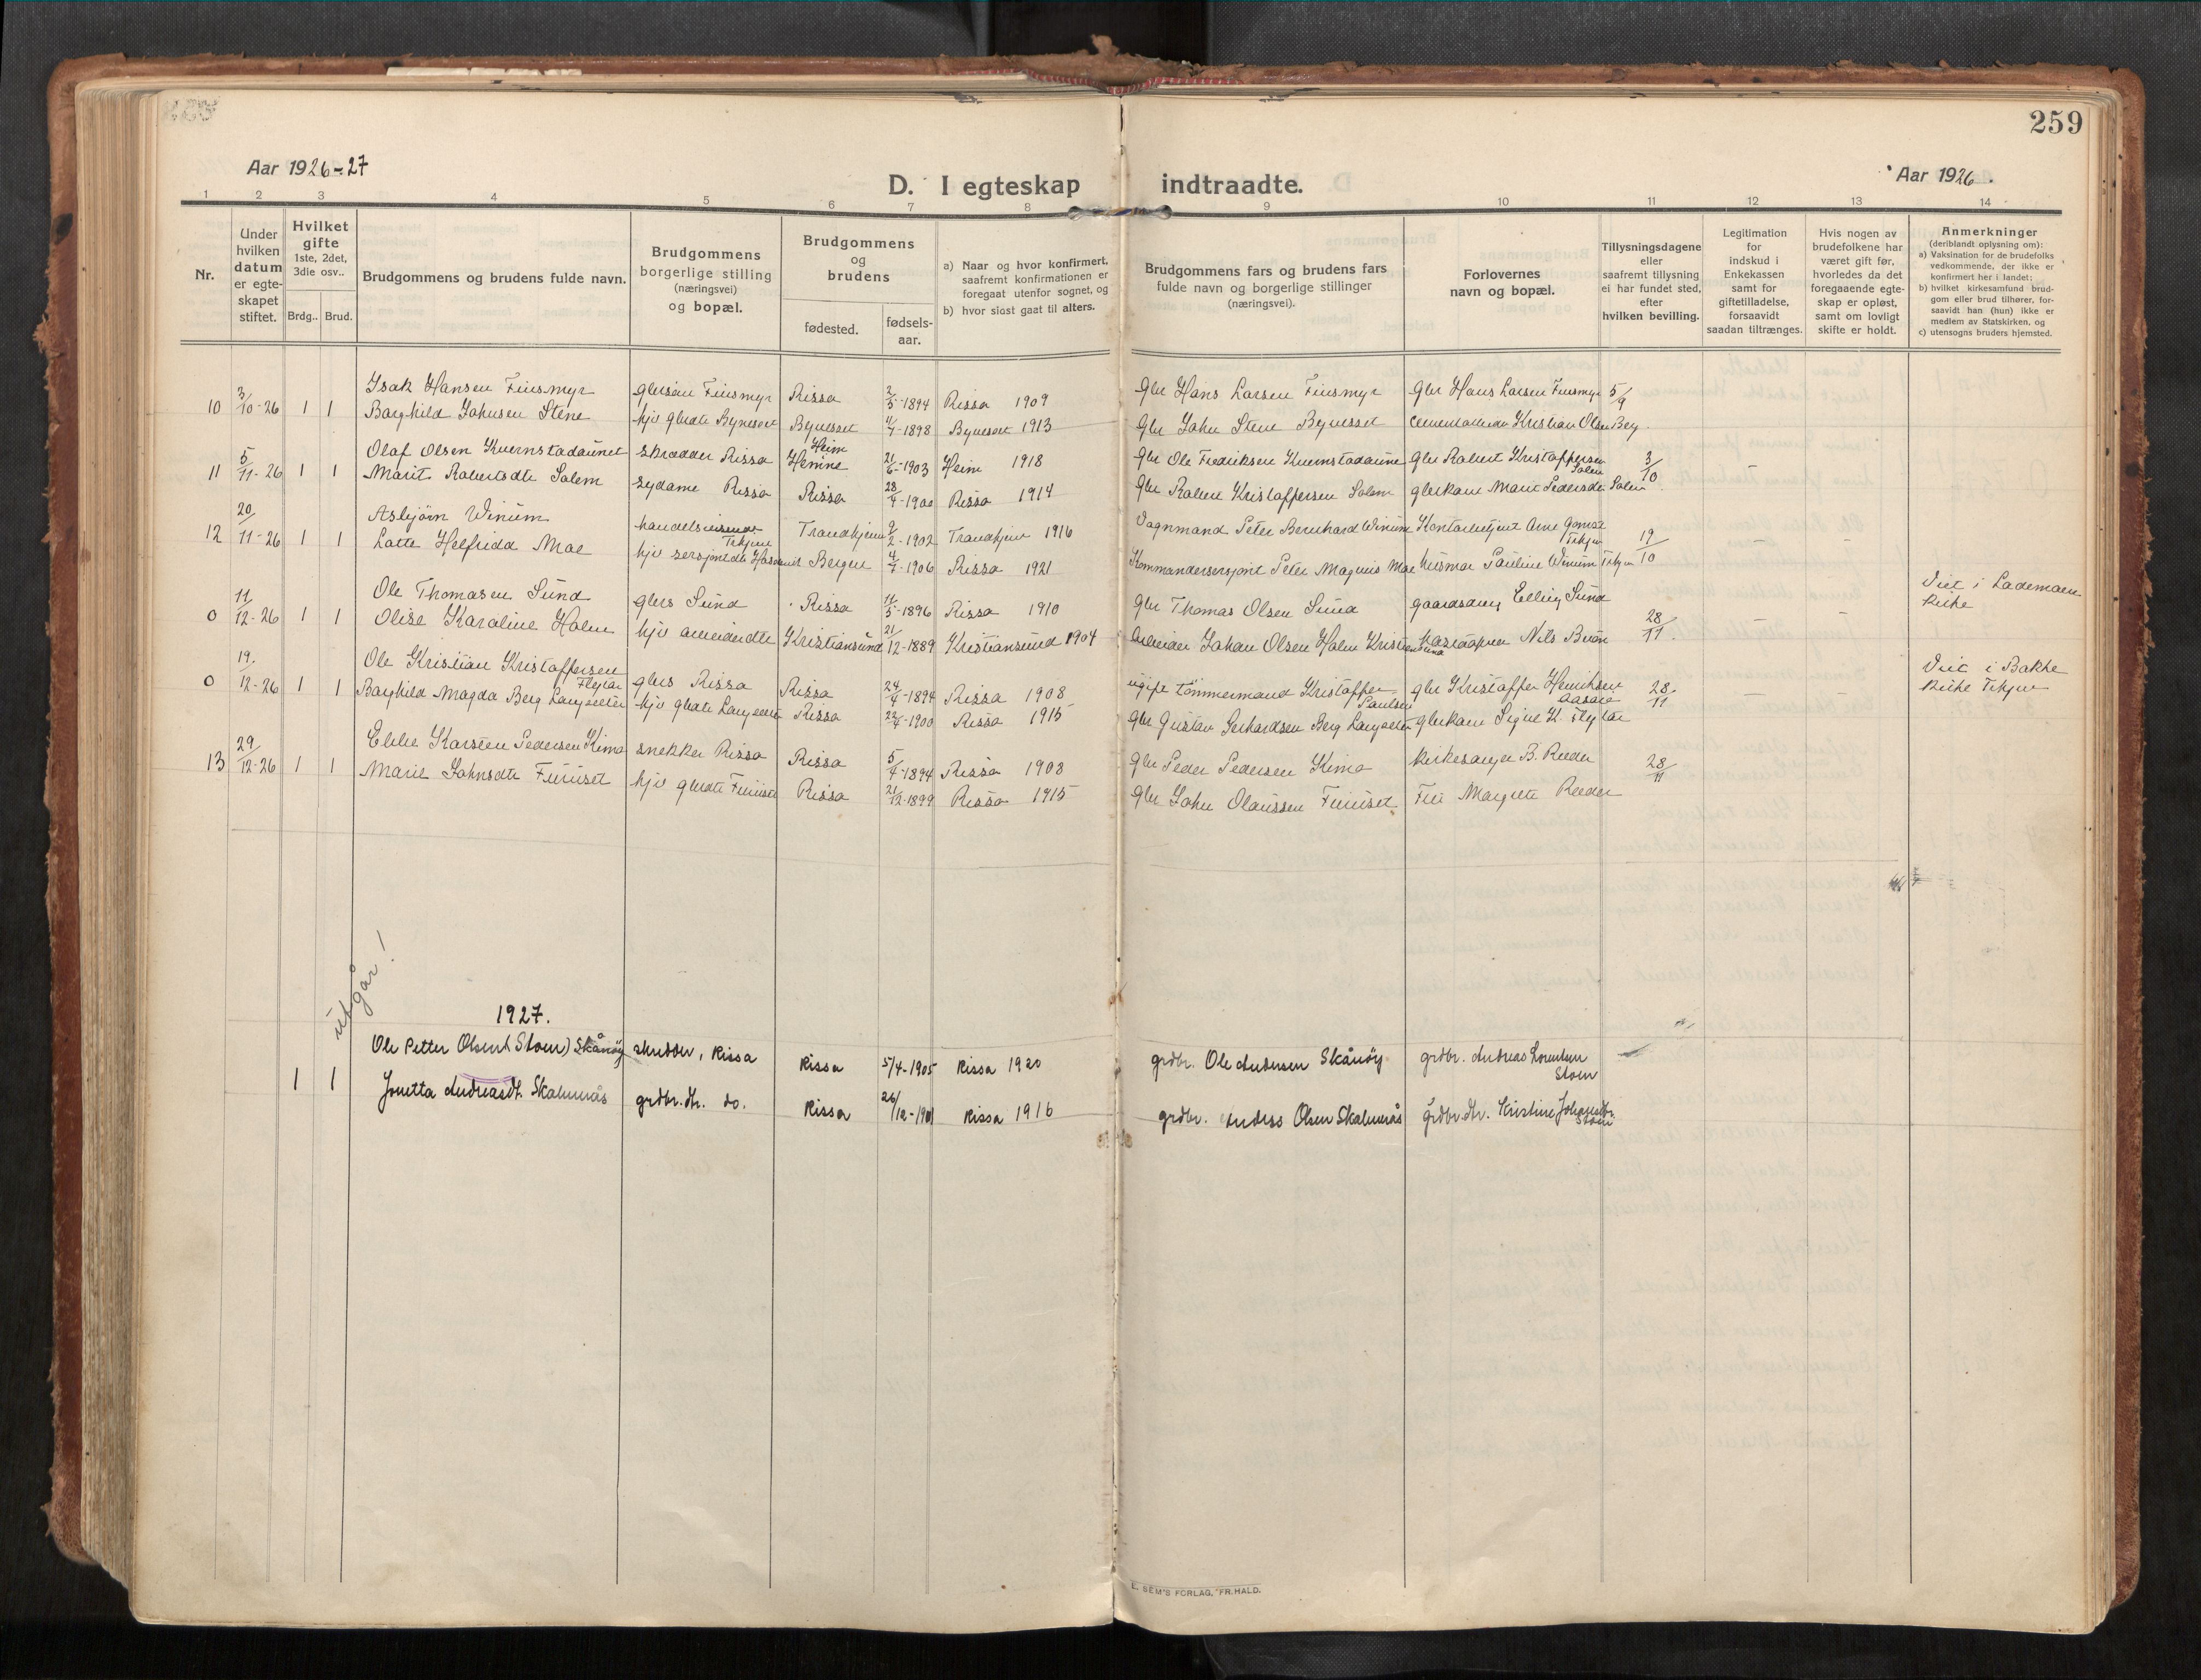 259
Aar 1926-27
D. I egteskap indtraadte.
Aar 1926.
1 2 3 4 5 6 7 8 9 10 11 12 13 14
Nr.
Under hvilken datum er egte-skapet stiftet.
Hvilket gifte 1ste, 2det, 3die osv..
Brdg.. Brud.
Brudgommens og brudens fulde navn.
Brudgommens borgerlige stilling (næringsvei) og bopæl.
Brudgommens og brudens
fødested.
fødsels-aar.
a) Naar og hvor konfirmert, saafremt konfirmationen er foregaat utenfor sognet, og
b) hvor sidst gaat til alters.
Brudgommens fars og brudens fars fulde navn og borgerlige stillinger (næringsvei).
Forlovernes navn og bopæl.
Tillysningsdagene eller saafremt tillysning ei har fundet sted, efter hvilken bevilling.
Legitimation for indskud i Enkekassen samt for giftetilladelse, forsaavidt saadan tiltrænges.
Hvis nogen av brudefolkene har været gift før, hvorledes da det foregaaende egte-skap er opløst, samt om lovligt skifte er holdt.
Anmerkninger (deriblandt oplysning om):
a) Vaksination for de brudefolks vedkommende, der ikke er konfirmert her i landet;
b) hvilket kirkesamfund brud-gom eller brud tilhører, for-saavidt han (hun) ikke er medlem av Statskirken, og
c) utensogns bruders hjemsted.
10 3/10-26 1 1 Isak Hansen Fiusmyr gbrsøn Fiusmyr Rissa 2/5-1894 Rissa 1909 Gbr Hans Larsen Fiusmyr Gbr Hans Larsen Fiusmyr 5/9
Borghild Johnsen Stene hjv gbrdtr Bynesset Bynesset 1/7-1898 Bynesset 1913 Gbr John Stene Bynesset Kristian Olsen Bey
11 5/11-26 1 1 Olaf Olsen Kvernstadaunet skrædder Rissa Hemne Heim 21/6-1903 Heim 1918 Gbr Ole Fredriksen Kvernstadaune Gbr Robert Kristoffersen Solem 3/10 -
Marit Robertsdtr Solem sydame Rissa Rissa 28/4-1900 Rissa 1914 Gbr Robert Kristoffersen Solem gbrkone Marit Pedersdtr Solem
12 20/11-26 1 1 Asbjörn Winum handelsreisende Trhjem Trondhjem 9/2-1902 Trondhjem 1916 Vognmand Peter Bernhard Winum Kontorbetjent Arne Trhjem 19/10 - -
Lotte Helfrida Moe hjv sersjantdtr Bergen 4/7-1906 Rissa 1921 Kommandersersjant Peter Magnus Moe husmor Pauline Winum Trhjem
0 11/12-26 1 1 Ole Thomasen Sund gbrs Sund Rissa 11/5-1896 Rissa 1910 Gbr Thomas Olsen Sund gaardsarb Elling Sund 28/11. - - Viet i Lademoen kirke
Olise Karoline Holm hjv arbeiderdtr Kristiansund 21/12-1889 Kristiansund 1904 Arbeider Johan Olsen Holm Kristiansund Nils Buan
0 19./12-26 1 1 Ole Kristian Kristoffersen Fleytar gbrs Rissa Rissa 24/4-1894 Rissa 1908 ugift tömmermand Kristoffer Paulsen gbr Kristoffer Henriksen 28./11 - - Viet i Bakke kirke Trhjem
Borghild Magda Berg Langseter hjv gbrdtr Langseter Rissa 22/7-1900 Rissa 1915 Gbr Gustav Gerhardsen Berg Langseter gbrkone Signe K. Fleytar
13 29/12-26 1 1 Ebbe Karsten Pedersen Kimo snekker Rissa Rissa 5/4-1894 Rissa 1908 Gbr Peder Pedersen Kimo kirkesanger B. Reeder 28/11
Marie Johnsdtr Furuset hjv gbrdtr Furuset Rissa 21/12-1899 Rissa 1915 Gbr John Olaussen Furuset Fru Margrete Reeder
utgår!
1927.
1 1 Ole Petter Olsen (Stoen) Skånöy skredder, Rissa Rissa 5/4-1905 Rissa 1920 grdbr. Ole Andersen Skånöy grdbr. Andreas Lorentsen Stoen
Jonetta Andreasdt. Skalmås grdbr.dtr. do. Rissa 26/12-1901 Rissa 1916 grdbr. Andreas Olsen Skalmås grdbr.dtr. Kristine Johansdtr. Stoen
E. SEM'S FORLAG, FR.HALD.